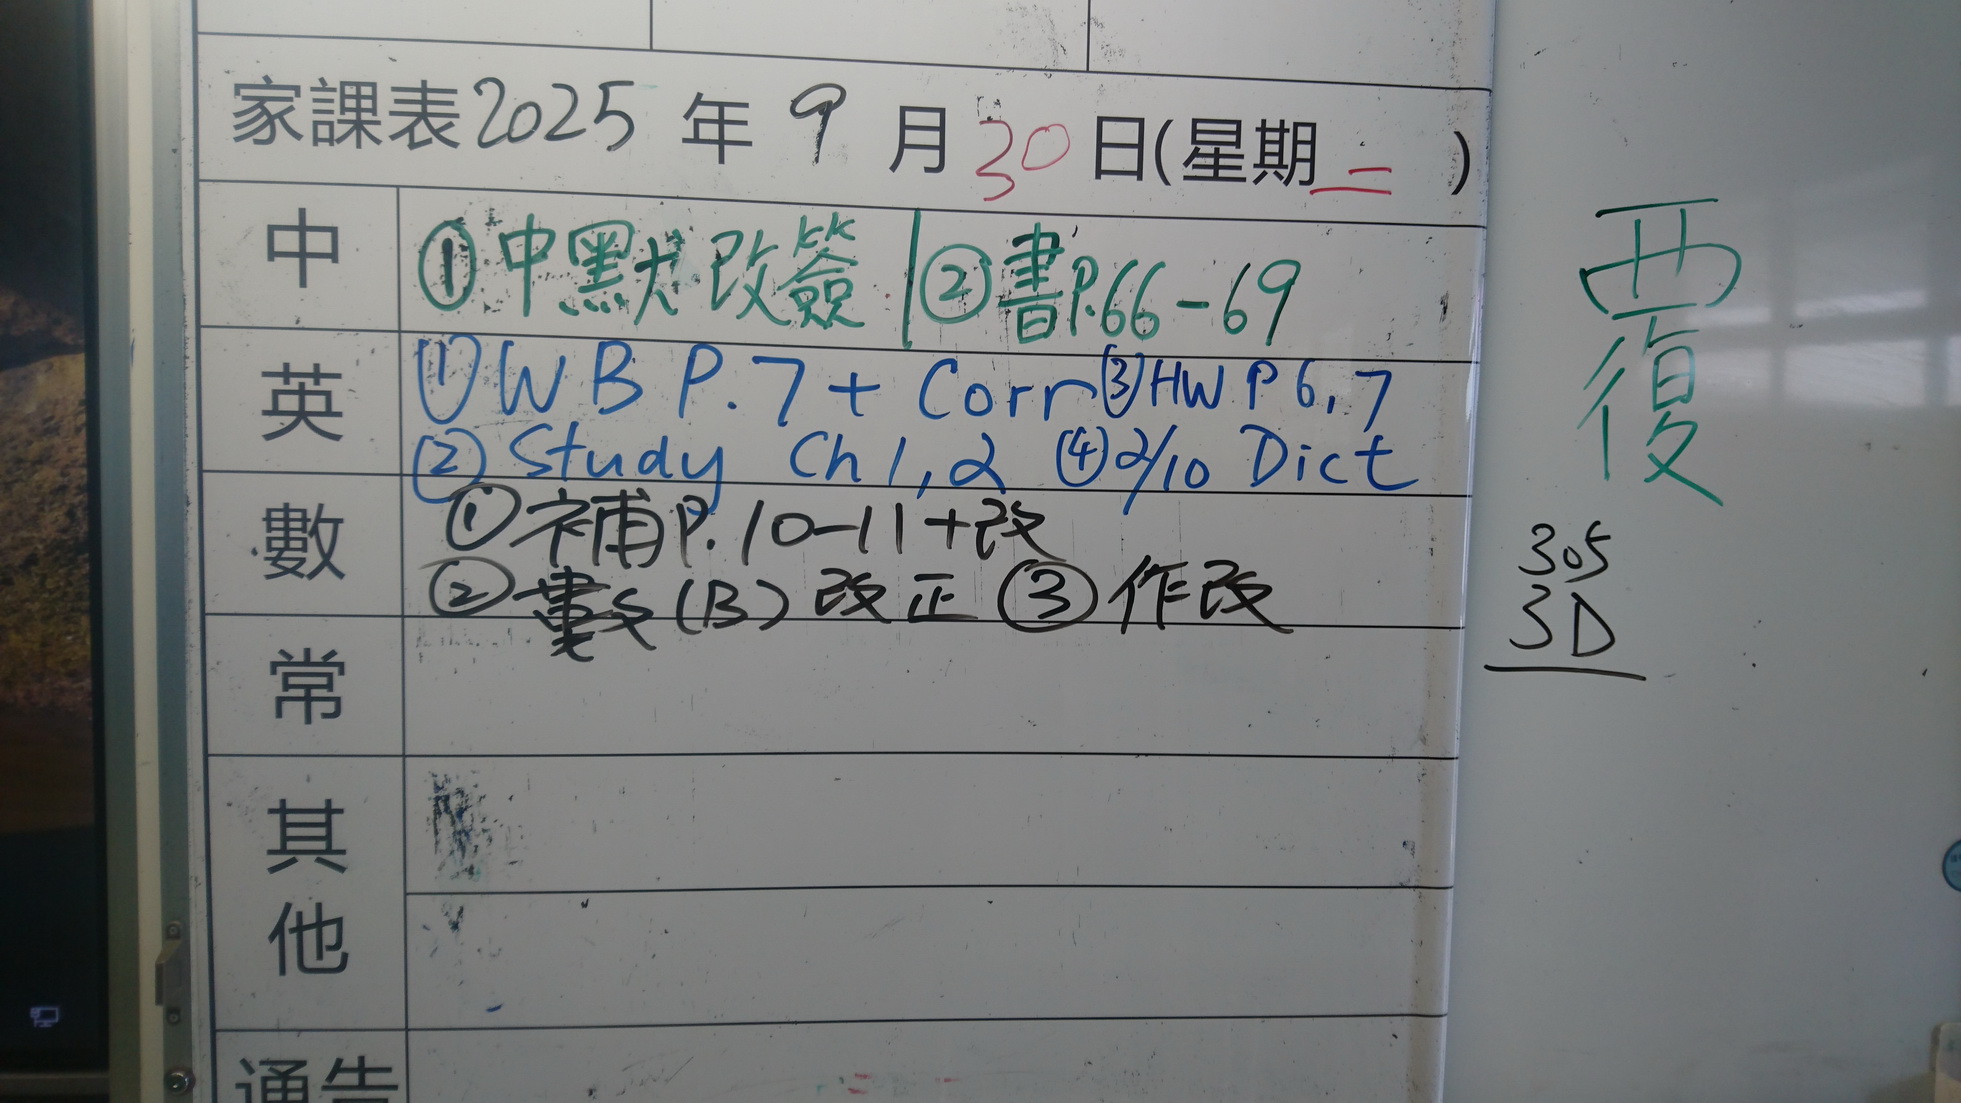 家課表2025年9月30日(星期二)
中 ①中默改簽 ②書P.66-69
英 ①WB P.7 + Corr ③HW P6,7
②Study Ch 1,2 ④2/10 Dict
數 ①補P.10-11+改
②數(B)改正 ③作改
常
其他
通告
覆
305
3D